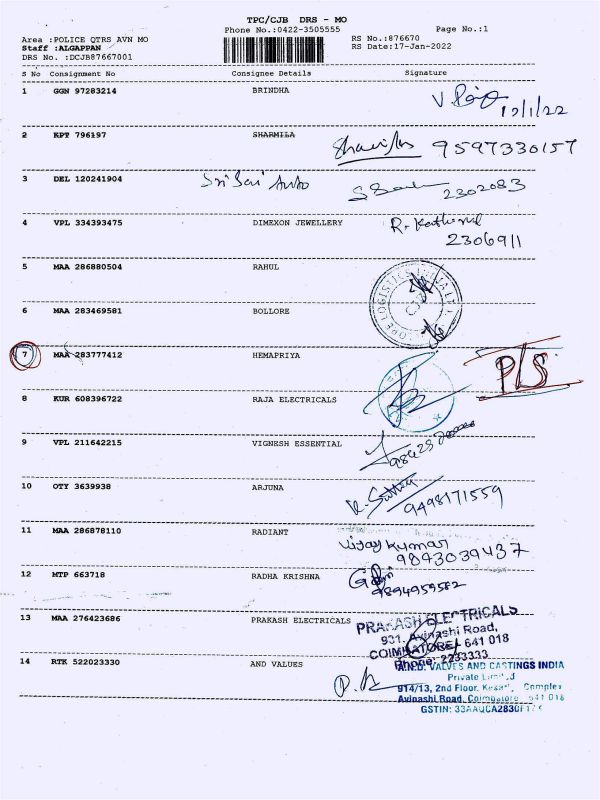 TPC/CJB DRS - MO
Phone No.:0422-3505555 Page No.:1
Area :POLICE QTRS AVN MO RS No.:876670
Staff :ALGAPPAN RS Date:17-Jan-2022
DRS No. :DCJB87667001
S No Consignment No Consignee Details Signature
1 GGN 97283214 BRINDHA
2 KPT 796197 SHARMILA 9597330157
3 DEL 120241904 Sri Sai Auto 2302083
4 VPL 334393475 DIMEXON JEWELLERY
2306911
5 MAA 286880504 RAHUL
6 MAA 283469581 BOLLORE
7 MAA 283777412 HEMAPRIYA P/S
8 KUR 608396722 RAJA ELECTRICALS
9 VPL 211642215 VIGNESH ESSENTIAL
10 OTY 3639938 ARJUNA
9498171559
11 MAA 286878110 RADIANT
Vijay Kumar
9843039437
12 MTP 663718 RADHA KRISHNA
9894959582
13 MAA 276423686 PRAKASH ELECTRICALS
PRAKASH ELECTRICALS
931, Avinashi Road,
COIMBATORE / 641 018
Phone: 2233333
14 RTK 522023330 AND VALUES
A.N.D. VALVES AND CASTINGS INDIA
Private Limited
914/13, 2nd Floor, Complex
Avinashi Road, Coimbatore 641 018